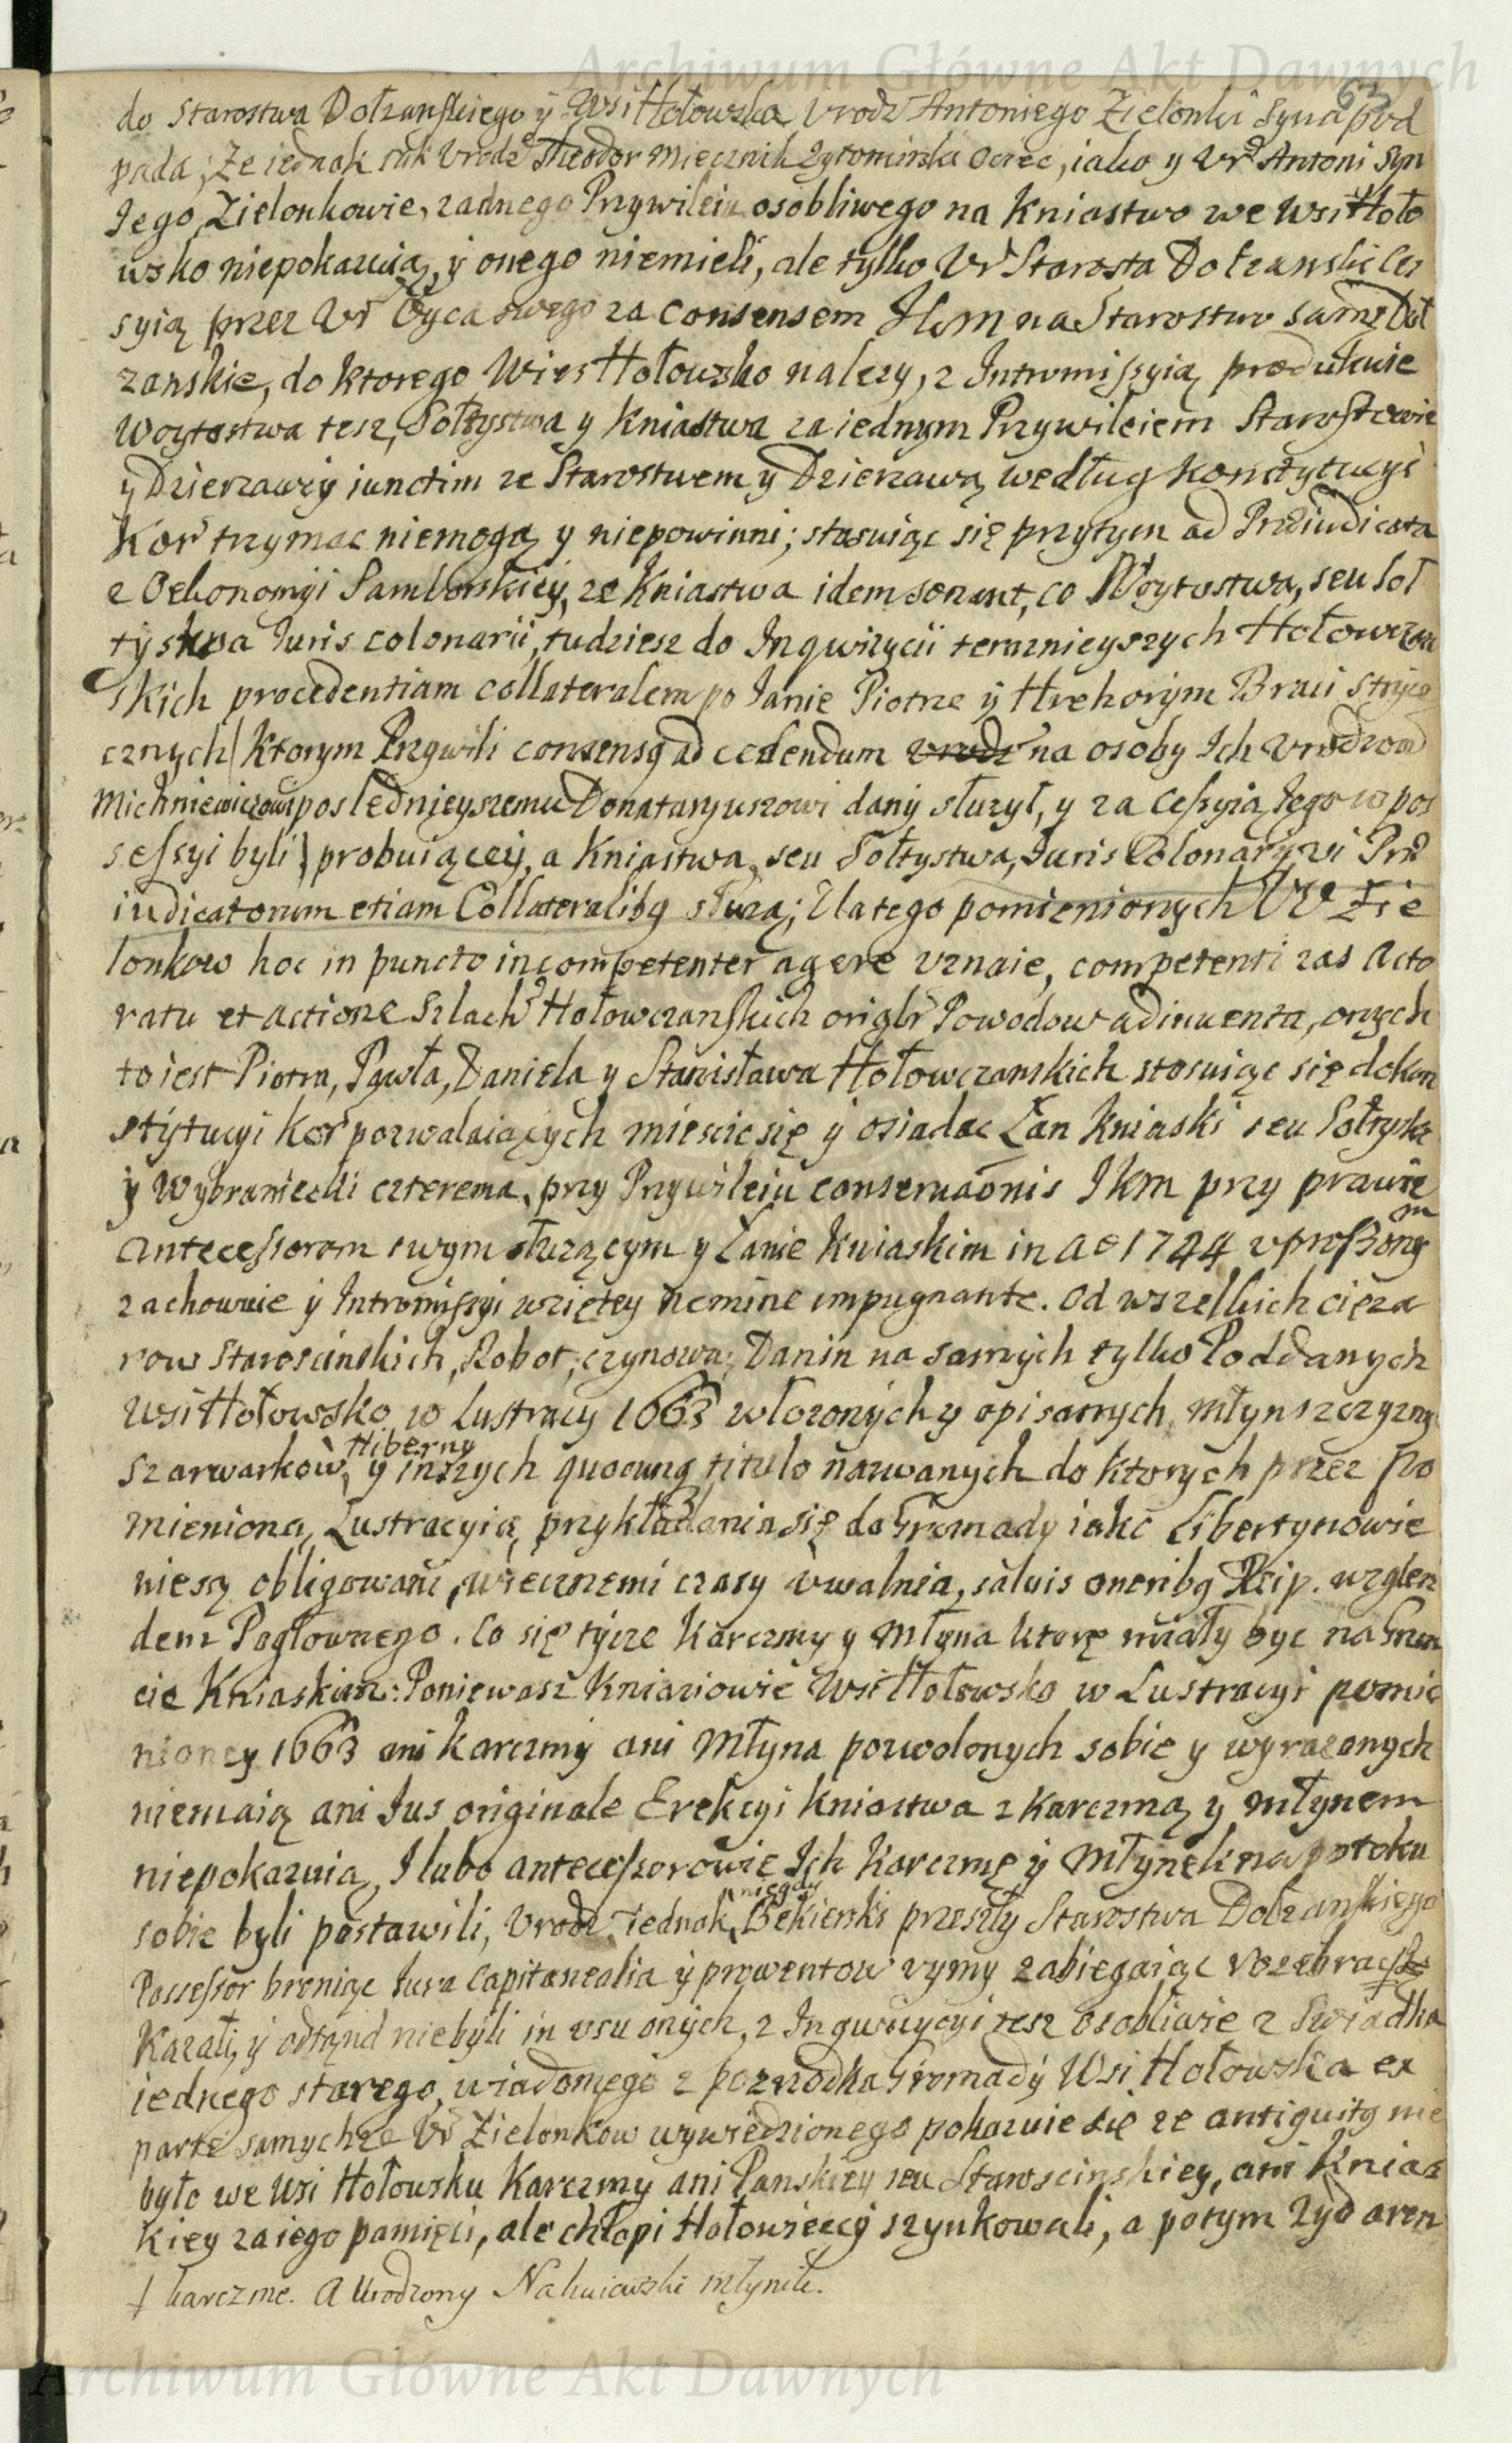 Archiwum Główne Akt Dawnych
62
do Starostwa Dołzanskiego y Wsi Hołowska Vrodz Antoniego Zielonki Syna pod
pada; Ze iednak tak Vrodz Theodor Miecznik Zytomirski Ociec, iako y Vr Antoni Syn
Jego Zielonkowie, zadnego Przywileiu osobliwego na Kniastwo we Wsi Hoło
wsko niepokazuią, y onego niemieli, ale tylko Vr Starosta Dołzanski Ces
syią przez Vr Oyca swego za Consensem JKM na Starostwo same Doł
zanskie, do ktorego Wies Hołowsko nalezy, z Intromissyią produkuie
Woytostwa tesz, Sołtystwa y Kniastwa za iednym Przywileiem Starostowie
y Dzierzawcy iunctim ze Starostwem y Dzierzawą według Konstytucyi
Kor trzymac niemogą y niepowinni; stosuiąc się przytym ad Præiudicata
z Oekonomyi Samborskiey, ze Kniastwa idem sonant, co Woytostwa, seu Soł
tystwa Iuris colonarii, tudziesz do Inqwizycii teraznieyszych Hołowczan
skich procedentiam collateralem po Janie Piotrze y Hrehorym Braci stryie
cznych / ktorym Przywili consensq ad cedendum na osoby Ich Vrodzon
Michniewiczowi poslednieyszemu Donataryuszowi dany słuzył, y za Cessyią Jego w pos
sessyi byli / probuiącey, a Kniastwa, seu Sołtystwa, Iuris Colonary vi Præ
iudicatorum etiam Collateralibq słuzą; Dlatego pomienionych Vr Zie
lonkow hoc in puncto incompetenter agere vznaie, competenti zas acto
ratu et actione Szlach Hołowczanskich origlr Powodow adinuenta, onych
to iest Piotra, Pawła, Daniela y Stanisława Hołowczanskich stosuiąc się do Kon
stytucyi Kor pozwalaiących miescic się y osiadac Łan Kniaski seu Sołtyski
y Wybraniecki czterema, przy Przywileiu conseruaonis JKM przy prawie
Antecessorom swym słuzącym y Łanie Kniaskim in Ao 1724 vproszonym
zachowuie y Intromissyi wziętey nemine impugnante. Od wszelkich cięza
row Staroscinskich, Robot, czynszu, Danin na samych tylko Poddanych
Wsi Hołowsko w Lustracy 1663 włozonych y opisanych, młynszczyzny
Szarwarkow, Hiberny y inszych quocunq titulo nazwanych do ktorych przez po
mieniona Lustracyią przykładania się do Gromady iako Libertynowie
niesą obligowani, wiecznemi czasy vwalnia, saluis oneribq Reip. wzglen
dem Pogłownego. Co się tycze Karczmy y Młyna ktore miały byc na Grun
cie Kniaskim: Poniewasz Kniaziowie Wsi Hołowsko w Lustracyi pomie
nioney 1663 ani karczmy ani Młyna pozwolonych sobie y wyrazonych
niemaią ani Jus originale Erekcyi Kniastwa z Karczmą y Młynem
niepokazuią, I lubo antecessorowie Ich Karczmę y Młynek na potoku
sobie byli postawili, Vrodz. iednak niegdy Bekierski przeszły Starostwa Dołzanskiego
Possessor broniąc Iura Capitanealia y prowentow vymy zabiegaiąc rozebrac ƚ
Kazał, y odtąnd niebyli in vsu onych, z Inqwizycyi tesz osobliwie z Swiadka
iednego starego, wiadomego z posrzodka Gromady Wsi Hołowska ex
parte samychze Vr Zielonkow wywiedzionego pokazuie się ze antiquitq nie
było we Wsi Hołowsku Karczmy ani Panskiey seu Staroscinskiey, ani Knias
kiey za iego pamięci, ale chłopi Hołowieccy szynkowali, a potym Zyd aren
ƚ karczme. A Urodzony Nahuiowski młynik.
Archiwum Główne Akt Dawnych